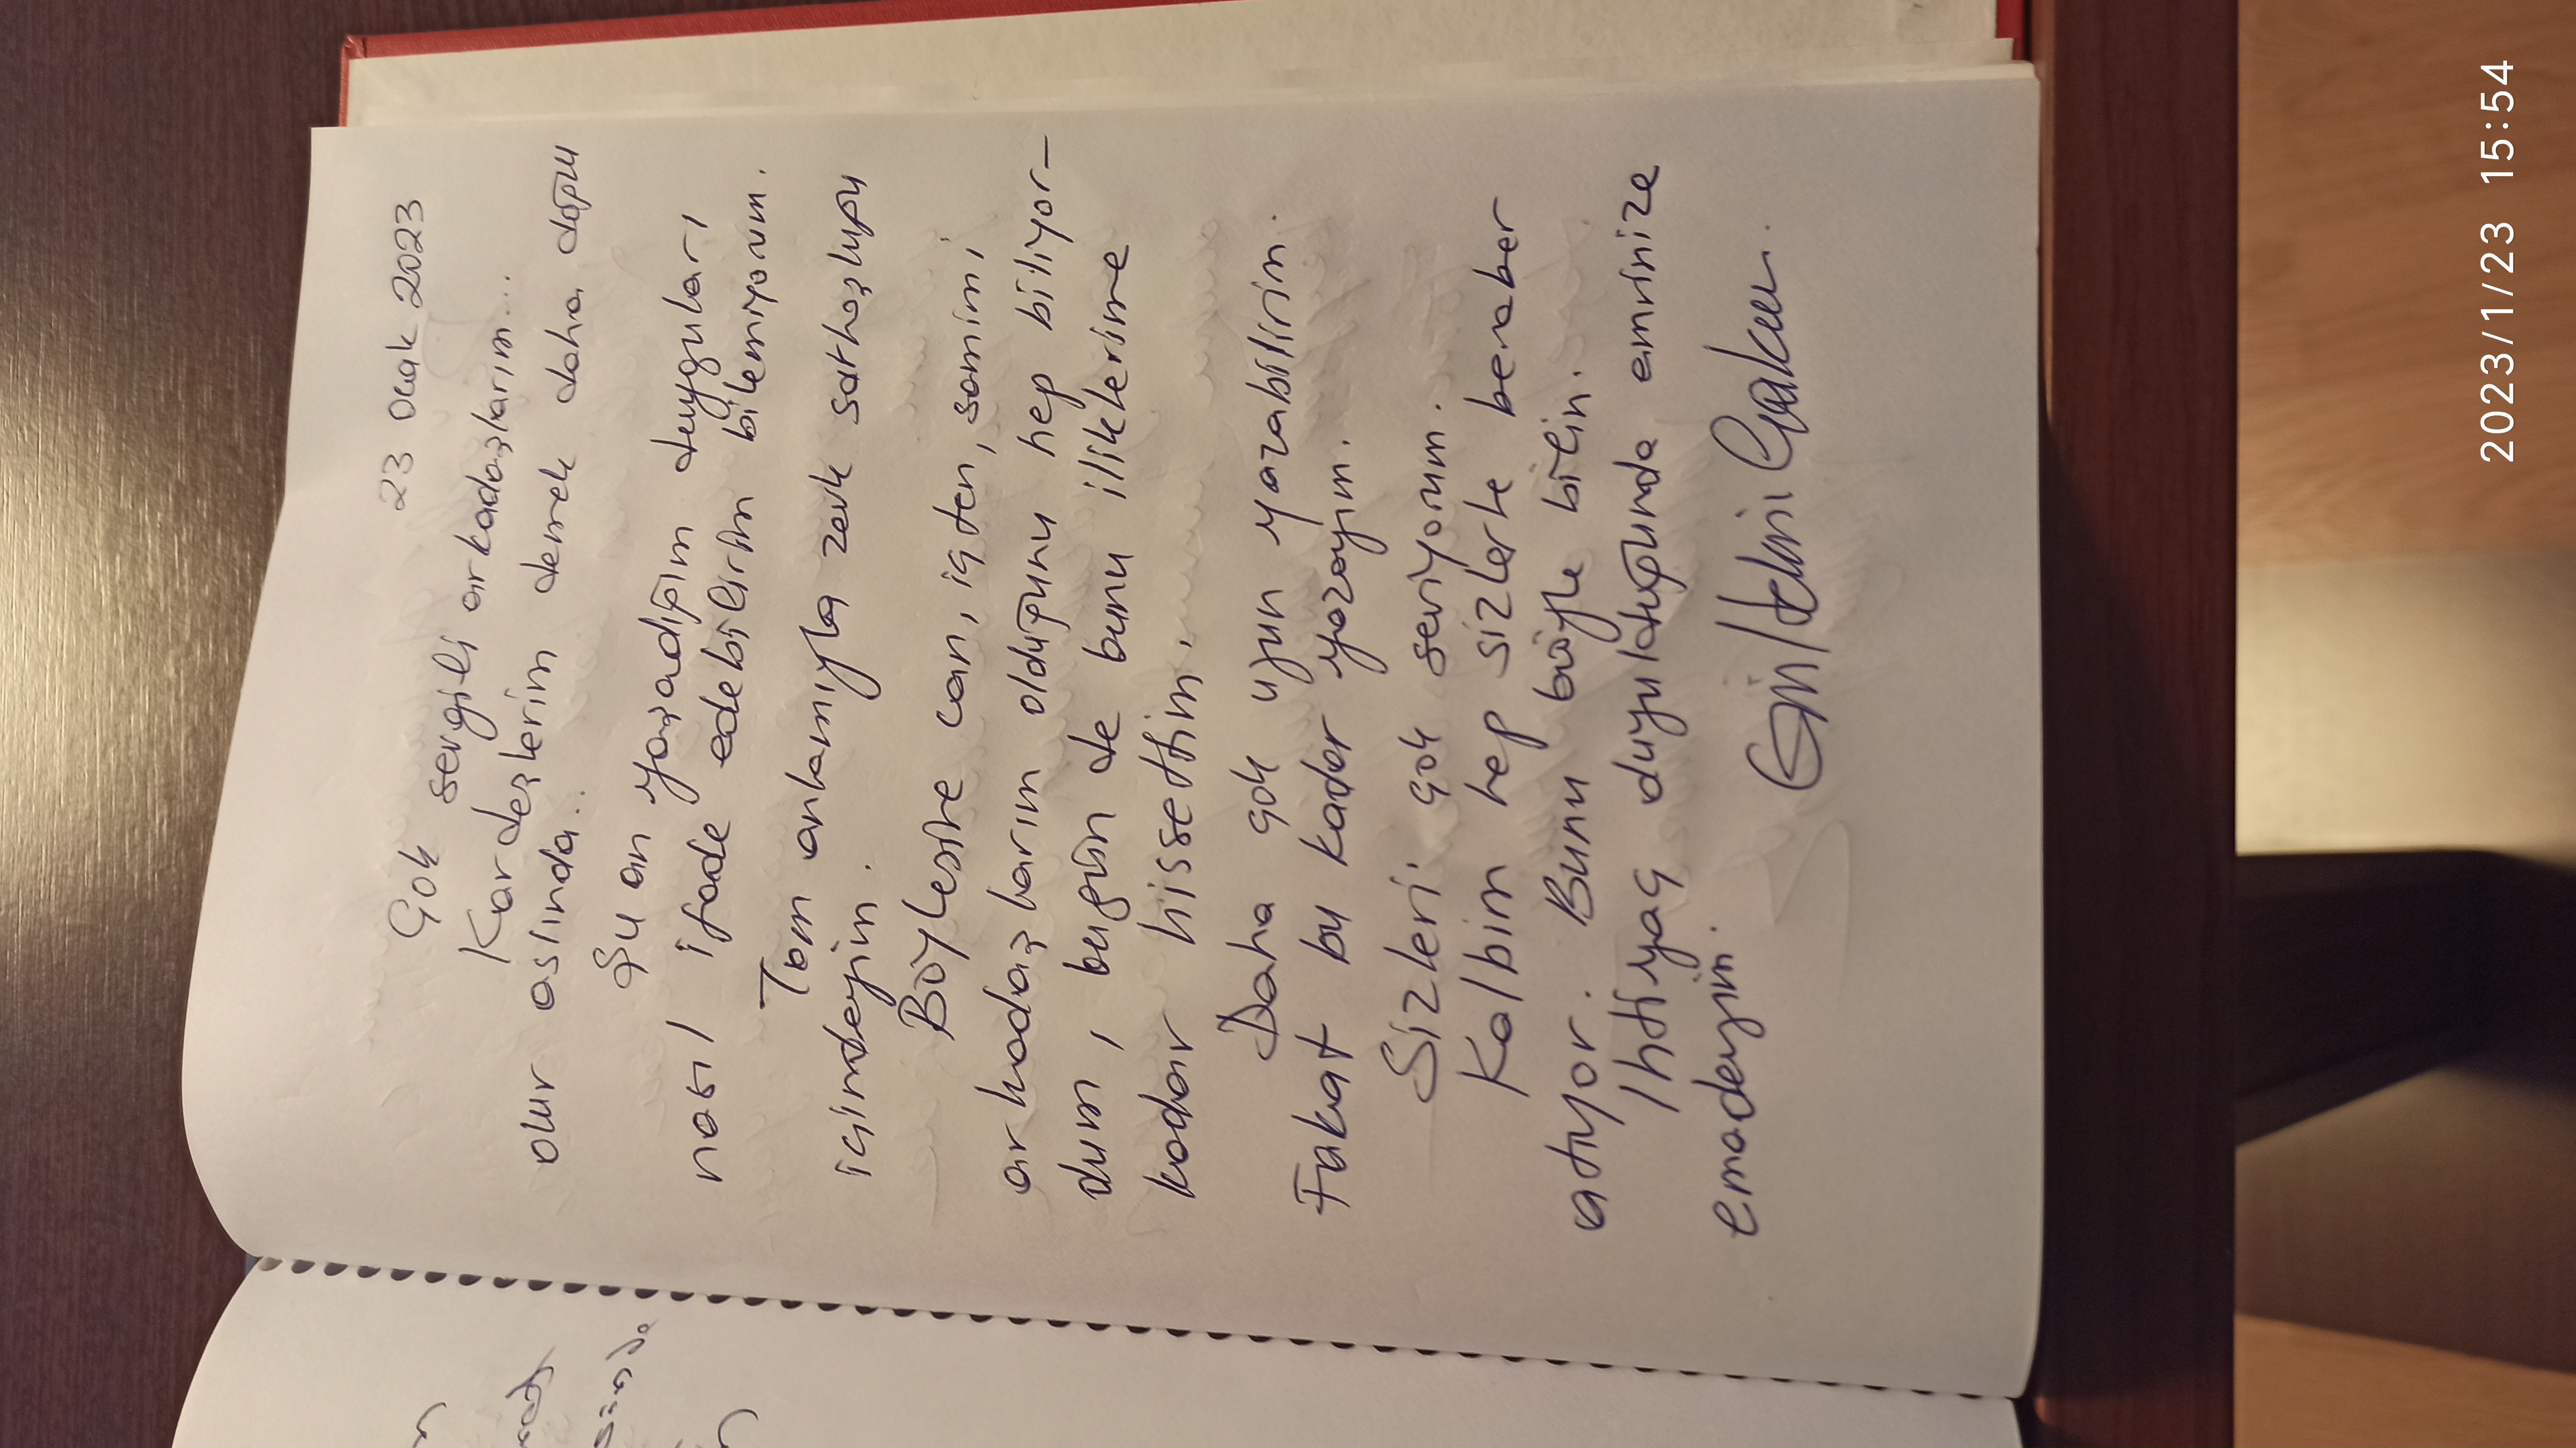 23 Ocak 2023
Çok sevgili arkadaşlarım...
Kardeşlerim demek daha doğru
olur aslında..
Şu an yaşadığım duyguları
nasıl ifade edebilirim bilemiyorum.
Tam anlamıyla zevk sarhoşluğu
içimdeyim.
Böylesine can, içten, samimi
arkadaşlarım olduğunu hep biliyor-
dum, bugün de bunu iliklerime
kadar hissettim.
Daha çok uzun yazabilirim.
Fakat bu kadar yazayım.
Sizleri çok seviyorum.
Kalbim hep sizlerle beraber
atıyor. Bunu böyle bilin.
İhtiyaç duyulduğunda emrinize
amadeyim.
2023/1/23 15:54